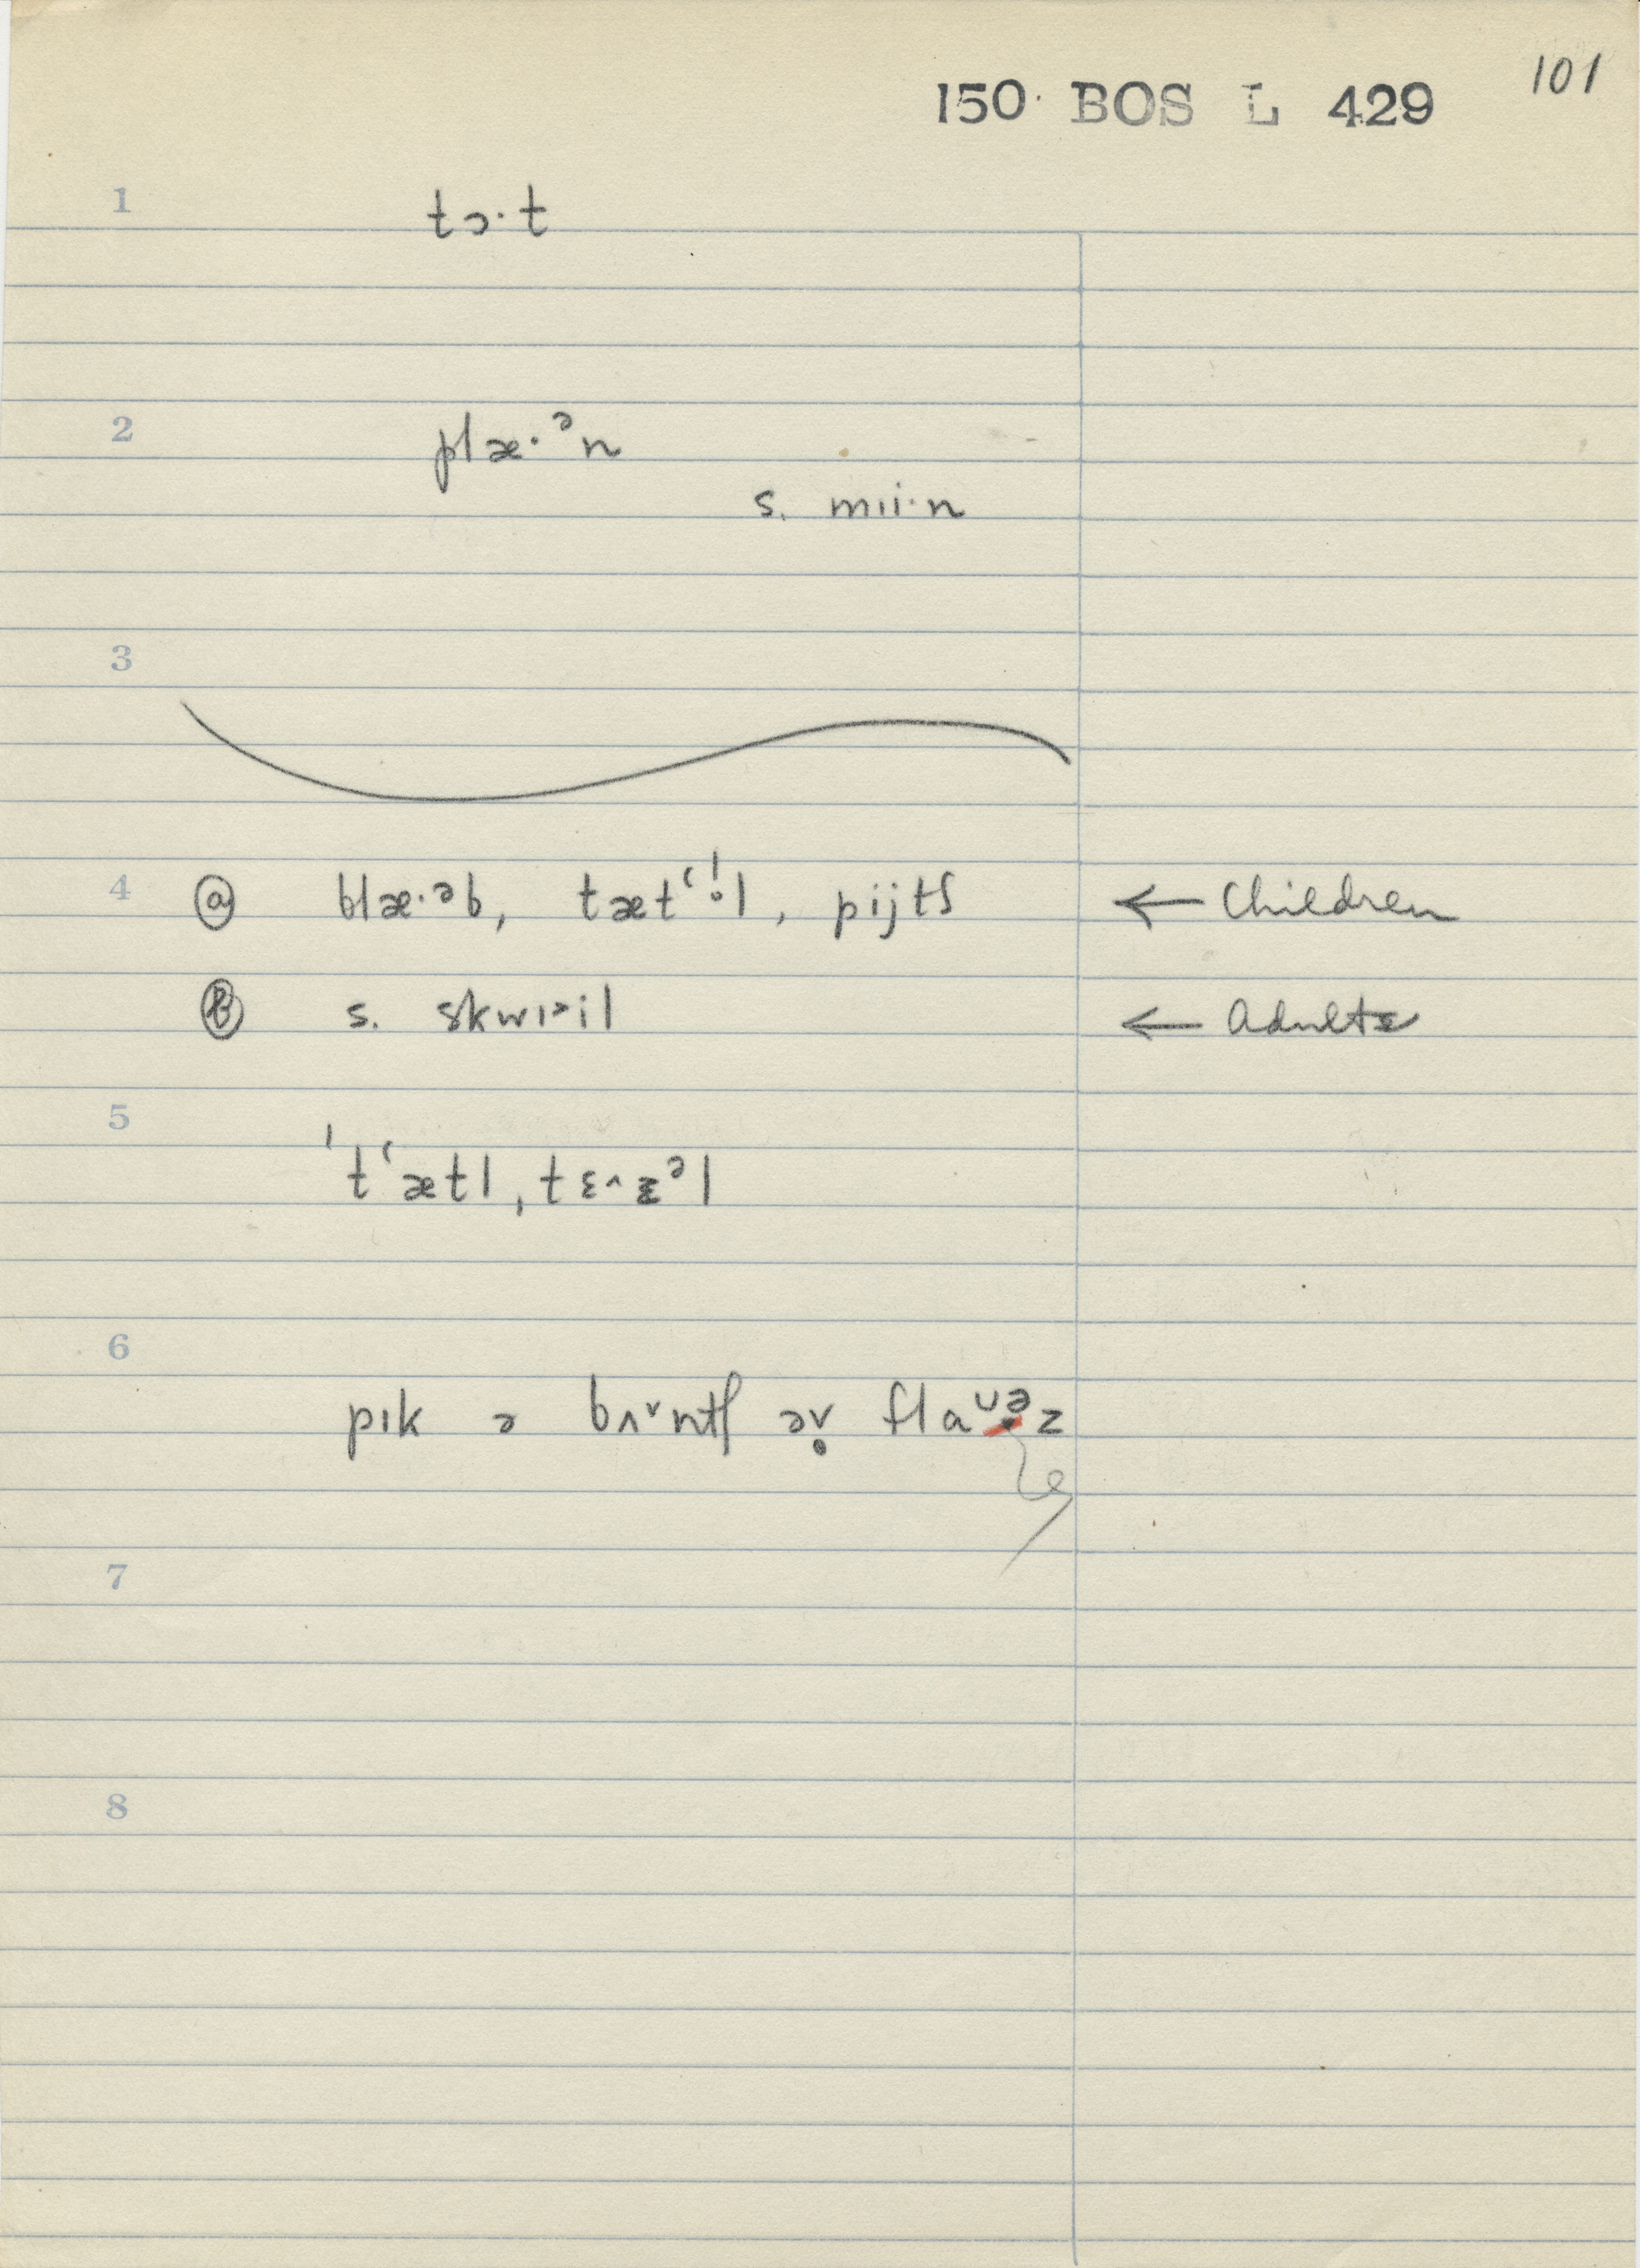 101
150 BOS L 429
1 tɔ·t
2 plæ·ᵊn
s. mıi·n
3
4 ⓐ blæ·əb, tætʻ!l, pijtʃ ← Children
ⓑ s. skwıɚil ← Adults
5 ˈtʻætl, tɛ˄zᵊl
6 pık ə bʌ˅ntʃ əv̥ flaᴜəz
7
8